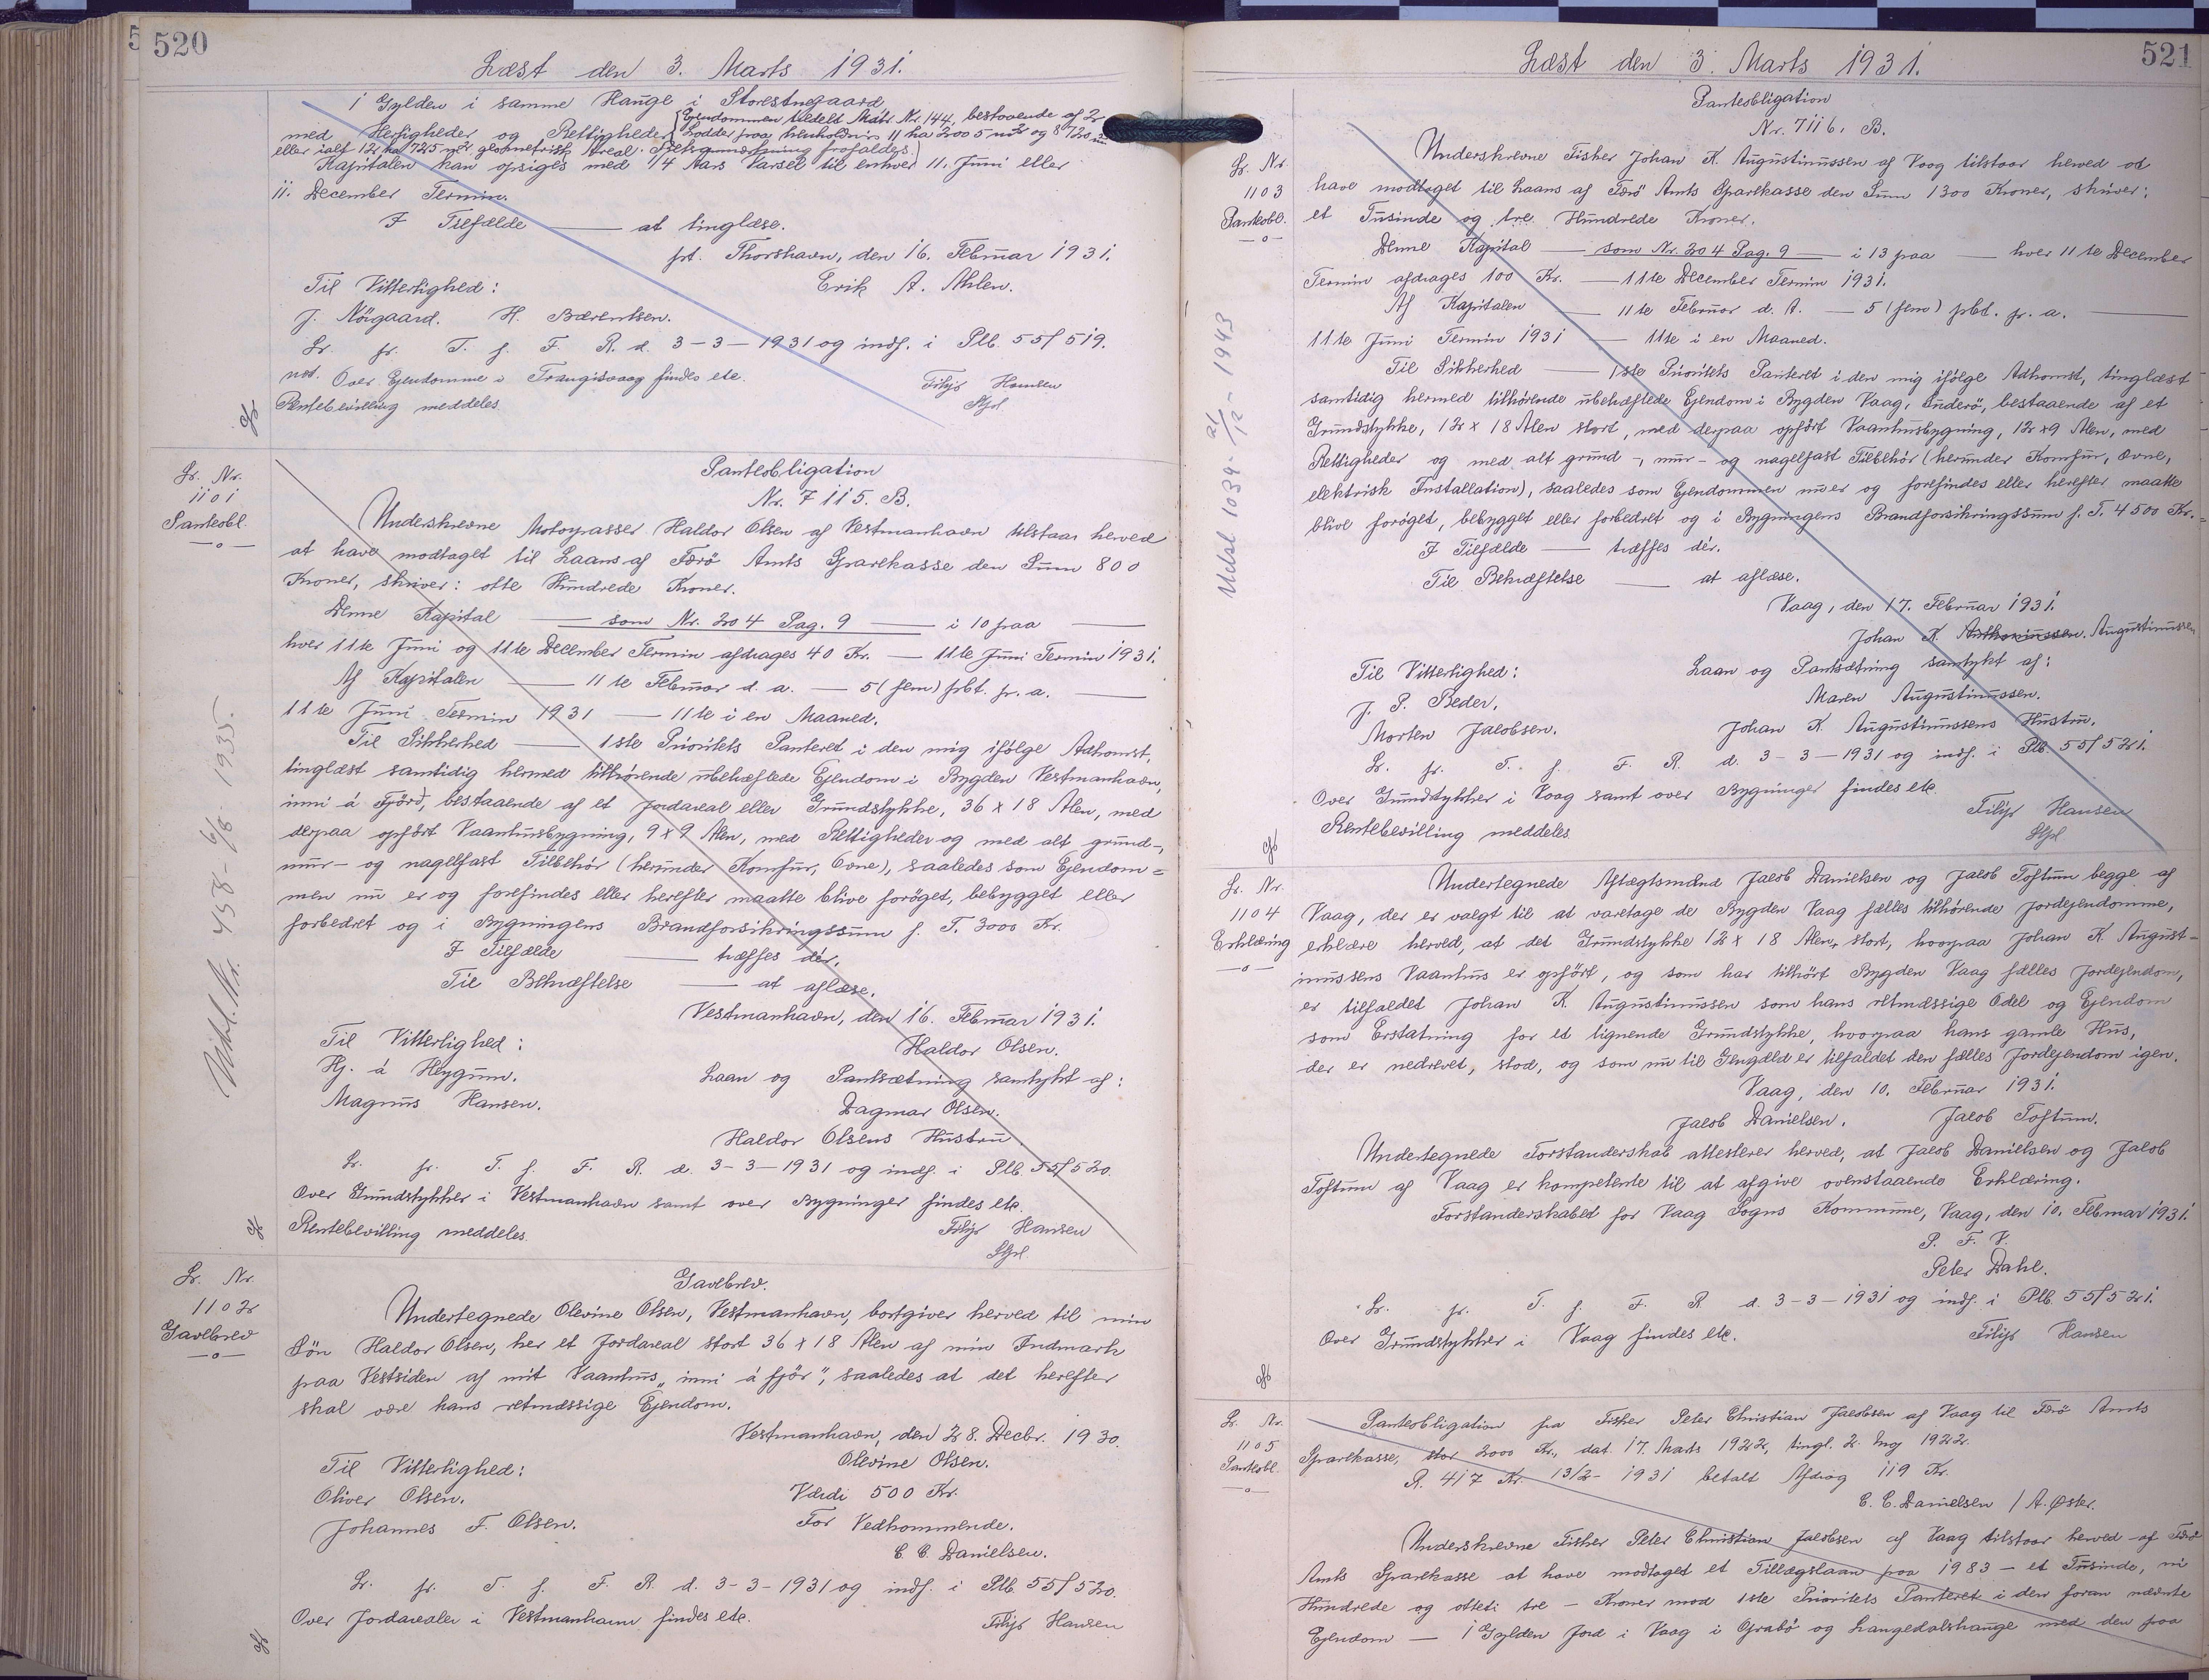 520
Læst den 3. Marts 1931.
1 Gylden i samme Hauge i Storestuegaard
med Herligheder og Rettigheder
(Ejendommen tildelt Matr. Nr. 144, bestaaende af 2
Lodder paa henholdsvis 11 ha 2005 m2 og 8720 m2
eller ialt 12 ha 725 m2 geometrisk Areal.
Kapitalen kan opsiges med 1/4 Aars Varsel til enhver 11. Juni eller
11. December Termin.
I Tilfælde — at tinglæse.
pt. Thorshavn, den 16. Februar 1931.
Til Vitterlighed: Erik A. Ahlen.
J. Nörgaard. H. Bærentsen.
Lr. fr. T. f. F. R. d. 3-3-1931 og indf. i Plb. 55/519.
not. Over Ejendomme i Trangisvaag findes etc.
Rentebevilling meddeles. Filip Hansen
Lr. Nr.
1101
Panteobl.
Pantesbligation
Nr. 7115. B.
Underskrevne Motorpasser Haldor Olsen af Vestmanhavn tilstaar herved
at have modtaget til Laans af Færö Amts Sparekasse den Sum 800
Kroner, skriver: otte Hundrede Kroner.
Denne Kapital — som Nr. 204 Pag. 9 — i 10 paa —
hver 11te Juni og 11te December Termin afdrages 40 Kr. — 11te Juni Termin 1931.
Af Kapitalen — 11te Februar d. a. — 5 (fem) pCt. p. a. —
11te Juni Termin 1931 — 11te i en Maaned.
Til Sikkerhed — 1ste Prioritets Panteret i den mig ifölge Adkomst,
tinglæst samtidig hermed tilhörende ubehæftede Ejendom i Bygden Vestmanhavn,
inni á Fjörð, bestaaende af et Jordareal eller Grundstykke, 36 x 18 Alen, med
derpaa opfört Vaanhusbygning, 9 x 9 Alen, med Rettigheder og med alt grund-,
mur- og nagelfast Tilbehör (herunder Komfur, Ovne), saaledes som Ejendom=
men nu er og forefindes eller herefter maatte blive foröget, bebygget eller
forbedret og i Bygningens Brandforsikringssum f. T. 3000 Kr.
I Tilfælde — træffes dér.
Til Bekræftelse — at aflæse.
Vestmanhavn, den 16. Februar 1931.
Til Vitterlighed: Haldor Olsen.
Hj. á Heygum. Laan og Pantsætning samtykt af:
Magnus Hansen. Dagmar Olsen.
Haldor Olsens Hustru.
Lr. fr. T. f. F. R. d. 3-3-1931 og indf. i Plb. 55/520.
Over Grundstykker i Vestmanhavn samt over Bygninger findes etc.
Rentebevilling meddeles. Filip Hansen
Udsl. Nr. 458 - 6/8 - 1935.
Lr. Nr.
1102
Gavebrev
Gavebrev.
Undertegnede Olevine Olsen, Vestmanhavn, bortgiver herved til min
Sön Haldor Olsen, her et Jordareal stort 36 x 18 Alen af min Indmark
paa Vestsiden af mit Vaanhus „inni á fjör“, saaledes at det herefter
skal være hans retmæssige Ejendom.
Vestmanhavn, den 28. Decbr. 1930.
Til Vitterlighed: Olevine Olsen.
Oliver Olsen. Værdi 500 Kr.
Johannes F. Olsen. For Vedkommende.
C. C. Danielsen.
Lr. fr. T. f. F. R. d. 3-3-1931 og indf. i Plb. 55/520.
Over Jordarealer i Vestmanhavn findes etc. Filip Hansen
521
Læst den 3. Marts 1931.
Lr. Nr.
1103
Panteobl.
Pantesbligation
Nr. 7116. B.
Underskrevne Fisker Johan K. Augustinussen af Vaag tilstaar herved at
have modtaget til Laans af Færö Amts Sparekasse den Sum 1300 Kroner, skriver:
et Tusinde og tre Hundrede Kroner.
Denne Kapital — som Nr. 204 Pag. 9 — i 13 paa — hver 11te December
Termin afdrages 100 Kr. — 11te December Termin 1931.
Af Kapitalen — 11te Februar d. A. — 5 (fem) pCt. p. a. —
11te Juni Termin 1931 — 11te i en Maaned.
Til Sikkerhed — 1ste Prioritets Panteret i den mig ifölge Adkomst, tinglæst
samtidig hermed tilhörende ubehæftede Ejendom i Bygden Vaag, Suderö, bestaaende af et
Grundstykke, 12 x 18 Alen stort, med derpaa opfört Vaanhusbygning, 12 x 9 Alen, med
Rettigheder og med alt grund-, mur- og nagelfast Tilbehör (herunder Komfur, Ovne,
elektrisk Installation), saaledes som Ejendommen nu er og forefindes eller herefter maatte
blive foröget, bebygget eller forbedret og i Bygningens Brandforsikringssum f. T. 4500 Kr.
I Tilfælde — træffes dér.
Til Bekræftelse — at aflæse.
Vaag, den 17. Februar 1931.
Johan K. Augustinussen
Til Vitterlighed: Laan og Pantsætning samtykt af:
J. P. Beder. Maren Augustinussen.
Morten Jacobsen. Johan K. Augustinussens Hustru.
Lr. fr. T. f. F. R. d. 3-3-1931 og indf. i Plb. 55/521.
Over Grundstykker i Vaag samt over Bygninger findes etc.
Rentebevilling meddeles Filip Hansen
Udsl 1039 - 21/12 - 1943
Lr. Nr.
1104
Erklæring
Undertegnede Aftægtsmænd Jacob Danielsen og Jacob Toftum begge af
Vaag, der er valgt til at varetage de Bygden Vaag fælles tilhörende Jordejendomme,
erklære herved, at det Grundstykke 12 x 18 Alen, stort, hvorpaa Johan K. August-
inussens Vaanhus er opfört, og som har tilhört Bygden Vaag fælles Jordejendom,
er tilfaldet Johan K. Augustinussen som hans retmæssige Odel og Ejendom
som Erstatning for et lignende Grundstykke, hvorpaa hans gamle Hus,
der er nedrevet, stod, og som nu til Gengæld er tilfaldet den fælles Jordejendom igen.
Vaag, den 10. Februar 1931.
Jacob Danielsen. Jacob Toftum.
Undertegnede Forstanderskab attesterer herved, at Jacob Danielsen og Jacob
Toftum af Vaag er kompetente til at afgive ovenstaaende Erklæring.
Forstanderskabet for Vaag Sogns Kommune, Vaag, den 10. Februar 1931.
P. F. V.
Peter Dahl.
Lr. fr. T. f. F. R. d. 3-3-1931 og indf. i Plb. 55/521.
Over Grundstykker i Vaag findes etc. Filip Hansen
Lr. Nr.
1105
Panteobl.
Pantesbligation fra Fisker Peter Christian Jacobsen af Vaag til Færö Amts
Sparekasse, stor 2000 Kr., dat. 17. Marts 1922, tingl. 2. Maj 1922.
R. 417 Kr. 13/2- 1931 betalt Afdrag 119 Kr.
C. C. Danielsen / A. Øster.
Underskrevne Fisker Peter Christian Jacobsen af Vaag tilstaar herved af Færö
Amts Sparekasse at have modtaget et Tillægslaan paa 1983 - et Tusinde, ni
Hundrede og otteti tre - Kroner mod 1ste Prioritets Panteret i den foran nævnte
Ejendom — 1 Gylden Jord i Vaag i Grabö og Langedalshauge med den paa